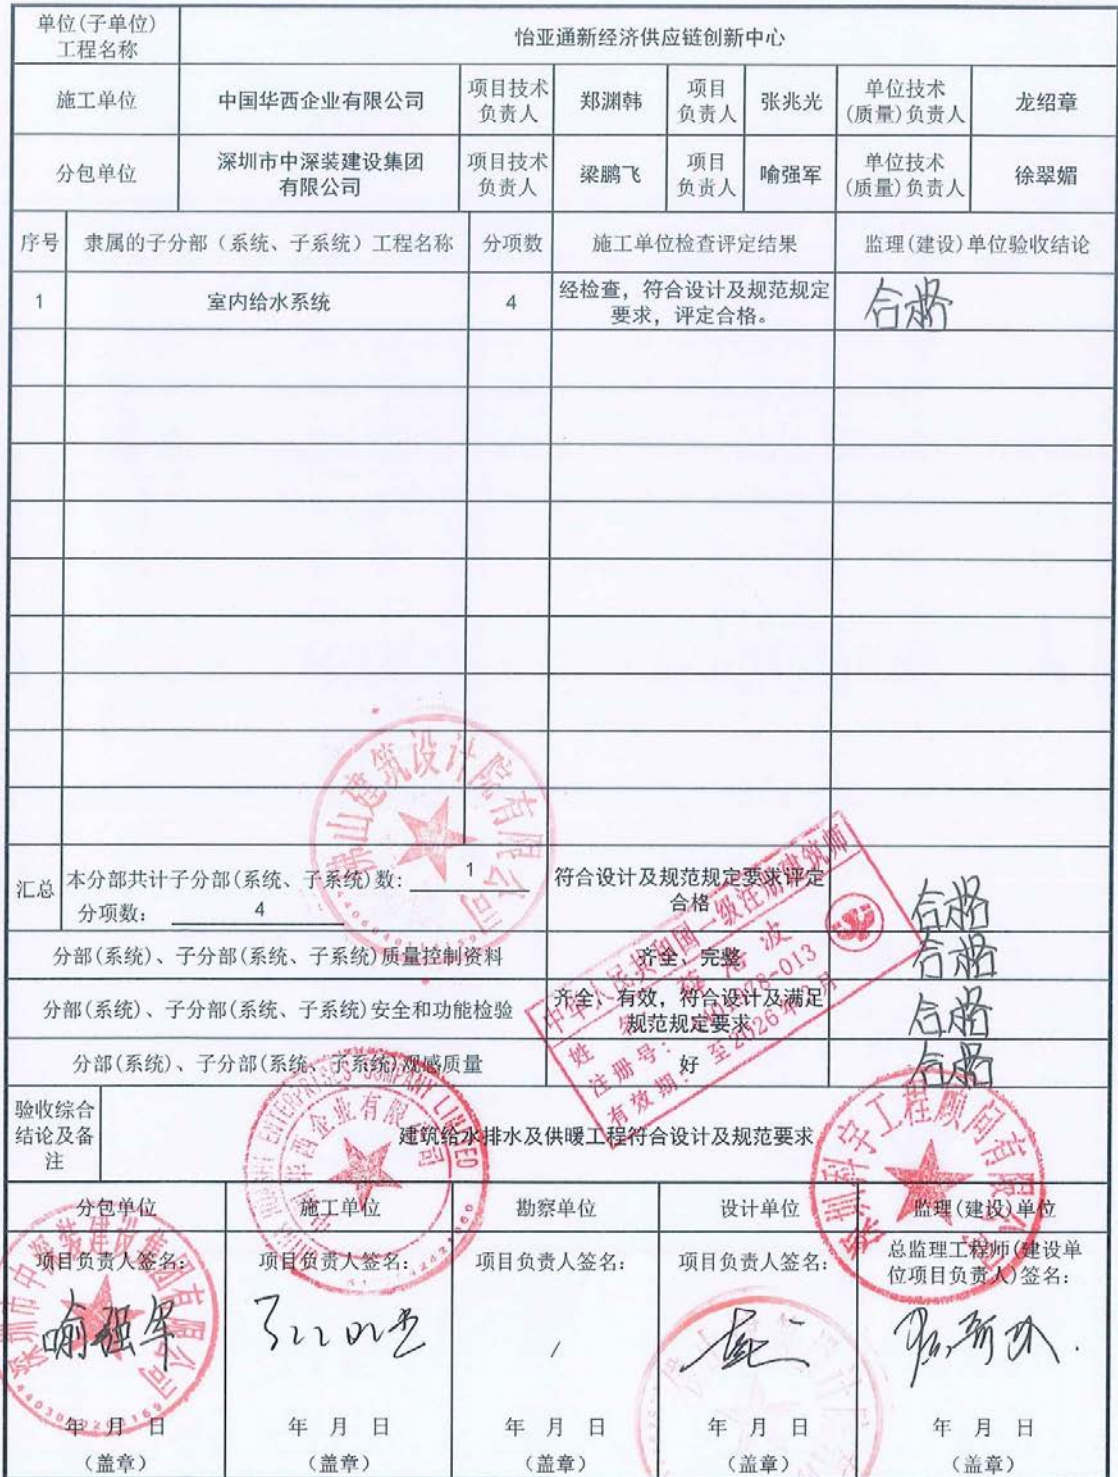 单位(子单位)
工程名称
怡亚通新经济供应链创新中心
施工单位
中国华西企业有限公司
项目技术
负责人
郑渊韩
项目
负责人
张兆光
单位技术
(质量)负责人
龙绍章
分包单位
深圳市中深装建设集团
有限公司
项目技术
负责人
梁鹏飞
项目
负责人
喻强军
单位技术
(质量)负责人
徐翠媚
序号
隶属的子分部（系统、子系统）工程名称
分项数
施工单位检查评定结果
监理(建设)单位验收结论
1
室内给水系统
4
经检查，符合设计及规范规定
要求，评定合格。
合格
汇总
本分部共计子分部(系统、子系统)数: 1
分项数: 4
符合设计及规范规定要求评定
合格
合格
分部(系统)、子分部(系统、子系统)质量控制资料
齐全、完整
合格
分部(系统)、子分部(系统、子系统)安全和功能检验
齐全、有效，符合设计及满足
规范规定要求
合格
分部(系统)、子分部(系统、子系统)观感质量
好
合格
验收综合
结论及备
注
建筑给水排水及供暖工程符合设计及规范要求
分包单位
施工单位
勘察单位
设计单位
监理(建设)单位
项目负责人签名:
项目负责人签名:
项目负责人签名:
项目负责人签名:
总监理工程师(建设单
位项目负责人)签名:
喻强军
/
年 月 日
年 月 日
年 月 日
年 月 日
年 月 日
(盖章)
(盖章)
(盖章)
(盖章)
(盖章)
佛山建筑设计院有限公司
中华人民共和国一级注册建筑师
姓 名:
注册号:
-013
有效期: 至2026年
华西企业有限公司
ENTERPRISES COMPANY LIMITED
深圳科宇工程顾问有限公司
深圳市中深装建设集团有限公司